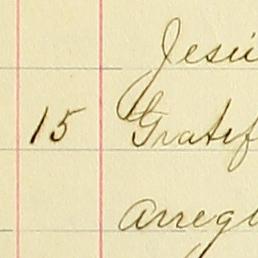 Jesú
15 Gratif
Arregl